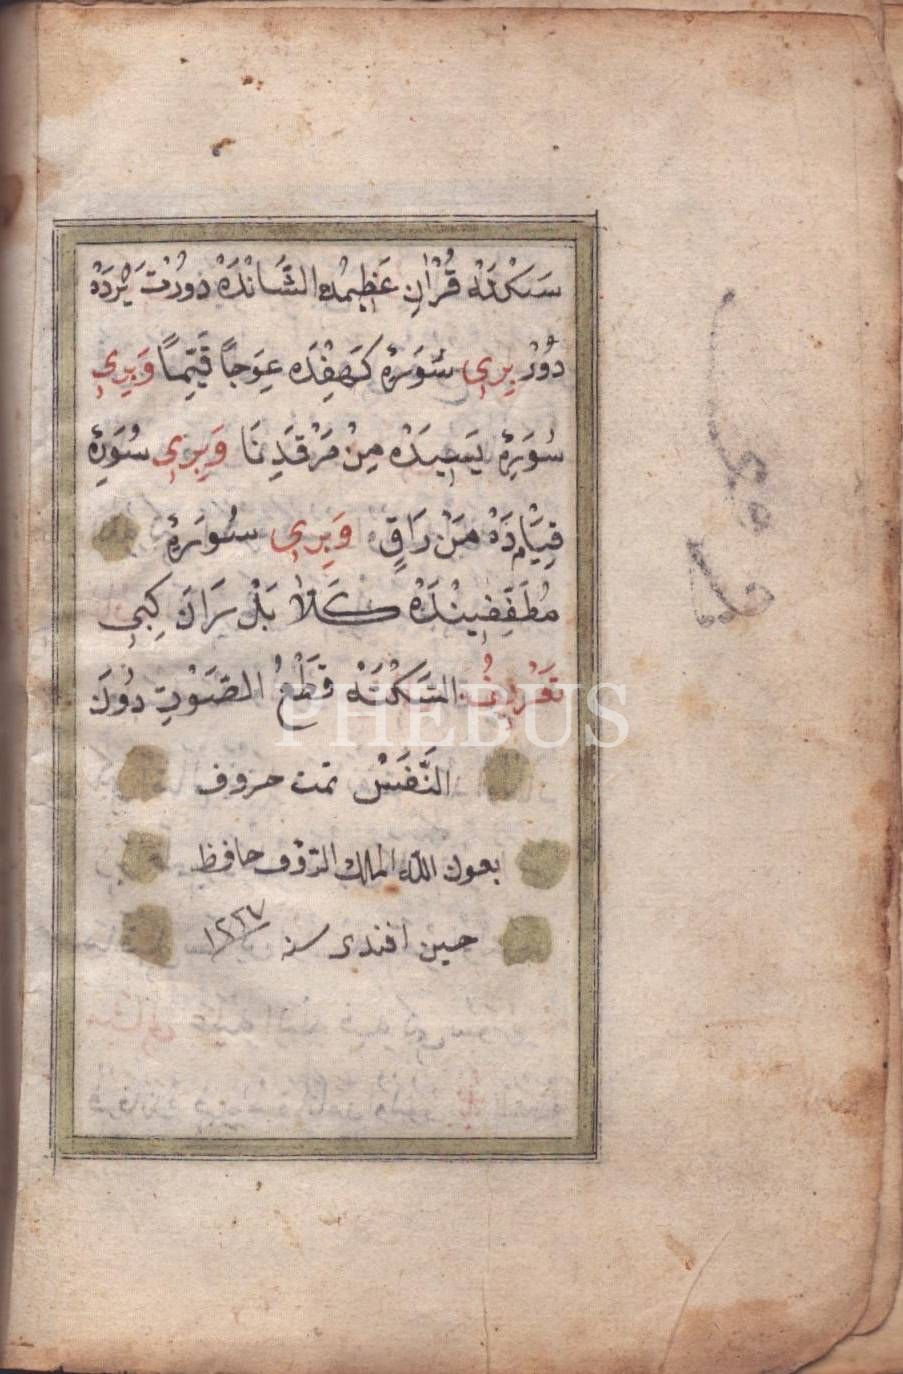 سَكْتَه قُرْاٰنِ عَظِيمُه الشَّانْدَهْ دورْتْ يَرْدَهْ
دُورْ بِرِي سُورَهٔ كَهِفْدَه عِوَجاً قَيِّماً وَبِرِي
سُورَهٔ يَسِيدَهْ مِنْ مَرْقَدِنَا وَبِرِي سُورَهٔ
قِيَامَدَهْ مَنْ رَاقٍ وَبِرِي سُورَهٔ
مُطَفِّفِينْدَهْ كَلَّا بَلْ رَانَ كِبِي
تَعْرِيفُ السَّكْتَهْ قَطْعُ الصَّوْتِ دُونَ
النَّفَسْ تمت حروف
بعون الله الملك الرؤف حافظ
حسين افندى سنه ١٢٢٧
PHEBUS